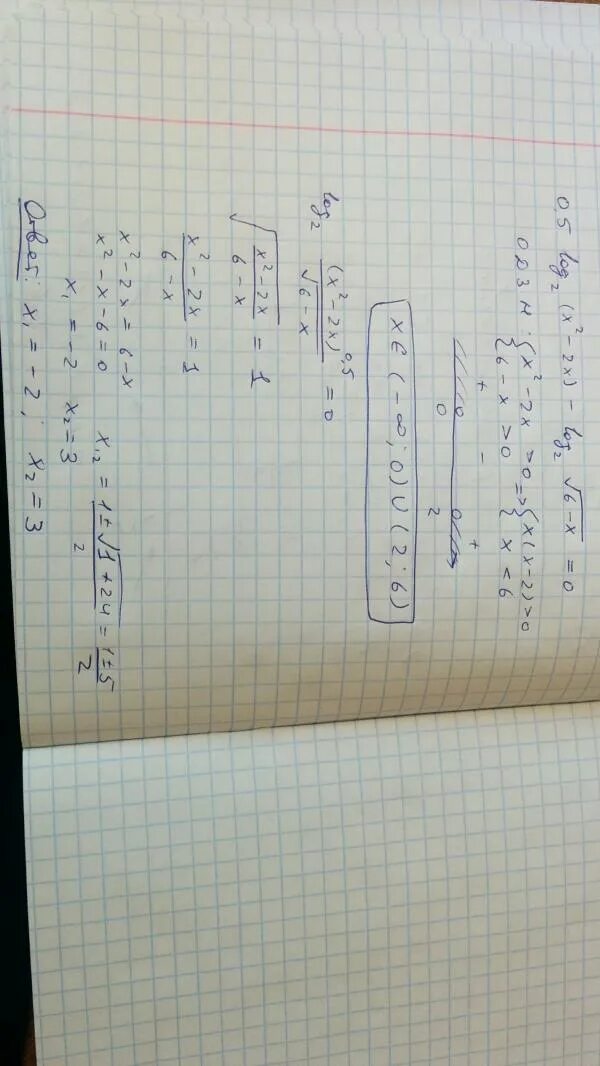 0,5 log₂ (x² - 2x) - log₂ √(6-x) = 0
ОДЗ: { x² - 2x > 0 => { x(x-2) > 0
{ 6 - x > 0 { x < 6
+ - +
0 2
x ∈ (-∞; 0) ∪ (2; 6)
log₂ (x² - 2x)^0,5 / √(6-x) = 0
√((x² - 2x)/(6 - x)) = 1
(x² - 2x)/(6 - x) = 1
x² - 2x = 6 - x
x² - x - 6 = 0 x₁,₂ = (1 ± √(1 + 24))/2 = (1 ± 5)/2
x₁ = -2 x₂ = 3
Ответ: x₁ = -2; x₂ = 3